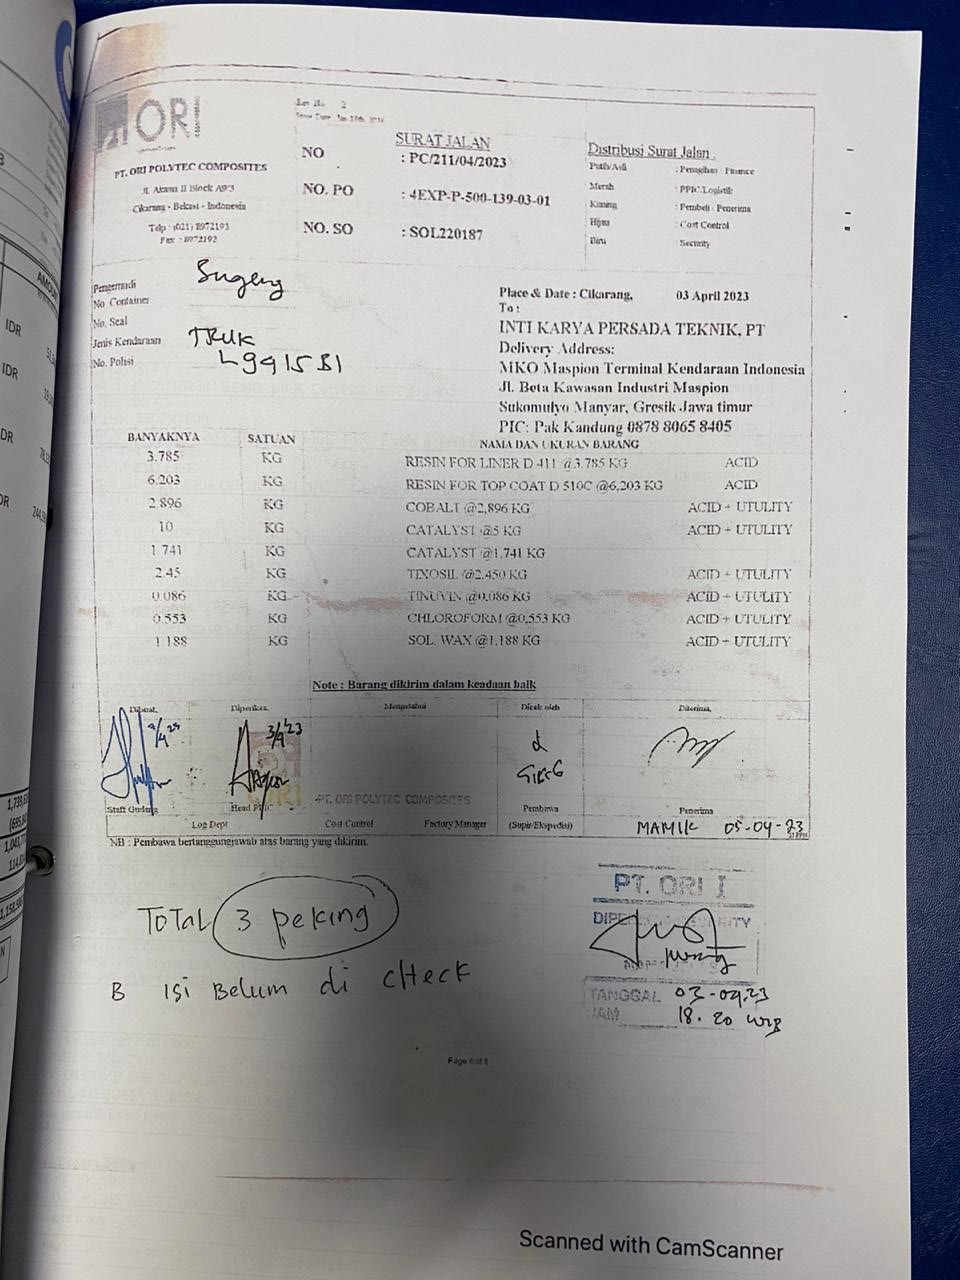 ORI
Rev No 2
PT. ORI POLYTEC COMPOSITES
Jl. Akasia II Block A9/3
Cikarang - Bekasi - Indonesia
Telp : (021) 8972193
Fax : 8972192
SURAT JALAN
NO : PC/211/04/2023
NO. PO : 4EXP-P-500-139-03-01
NO. SO : SOL220187
Distribusi Surat Jalan
Putih/Asli : Penagihan / Finance
Merah : PPIC/Logistik
Kuning : Pembeli / Penerima
Hijau : Cost Control
Biru : Security
Pengemudi Sugeng
No Container
No. Seal
Jenis Kendaraan TRUK
No. Polisi L9915BI
Place & Date : Cikarang, 03 April 2023
To :
INTI KARYA PERSADA TEKNIK, PT
Delivery Address:
MKO Maspion Terminal Kendaraan Indonesia
Jl. Beta Kawasan Industri Maspion
Sukomulyo Manyar, Gresik Jawa timur
PIC: Pak Kandung 0878 8065 8405
BANYAKNYA SATUAN NAMA DAN UKURAN BARANG
3.785 KG RESIN FOR LINER D 411 @3,785 KG ACID
6.203 KG RESIN FOR TOP COAT D 510C @6,203 KG ACID
2.896 KG COBALT @2,896 KG ACID + UTULITY
10 KG CATALYST @5 KG ACID + UTULITY
1.741 KG CATALYST @1,741 KG
2.45 KG TIXOSIL @2.450 KG ACID + UTULITY
0.086 KG TINUVIN @0.086 KG ACID + UTULITY
0.553 KG CHLOROFORM @0,553 KG ACID + UTULITY
1.188 KG SOL. WAX @1,188 KG ACID + UTULITY
Note : Barang dikirim dalam keadaan baik
Dibuat, Diperiksa, Mengetahui Dicek oleh Diterima,
3/4'23
PT. ORI POLYTEC COMPOSITES
Staff Gudang Head PPIC Pembawa Penerima
Log Dept Cost Control Factory Manager (Supir/Ekspedisi) MAMIK 05-04-23
NB : Pembawa bertanggungjawab atas barang yang dikirim.
Total 3 peking
B isi Belum di check
PT. ORI
TANGGAL 03-04.23
JAM 18.20 WIB
Scanned with CamScanner
AMOUNT
IDR
IDR